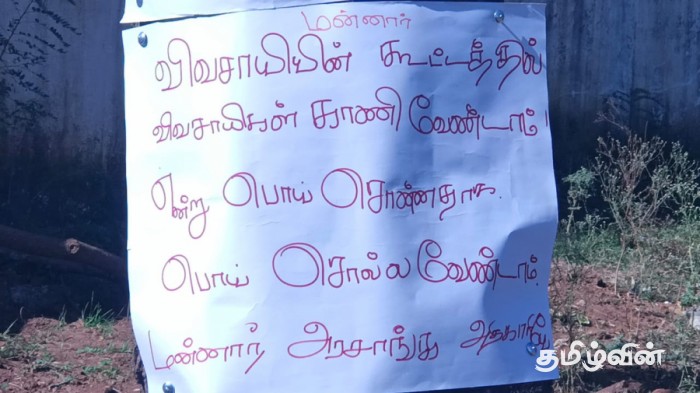 மன்னார்
விவசாயியின் கூட்டத்தில்
விவசாயிகள் காணி வேண்டாம்!
என்று பொய் சொன்னதாக.
பொய் சொல்ல வேண்டாம்.
மன்னார் அரசாங்க
தமிழ்வின்